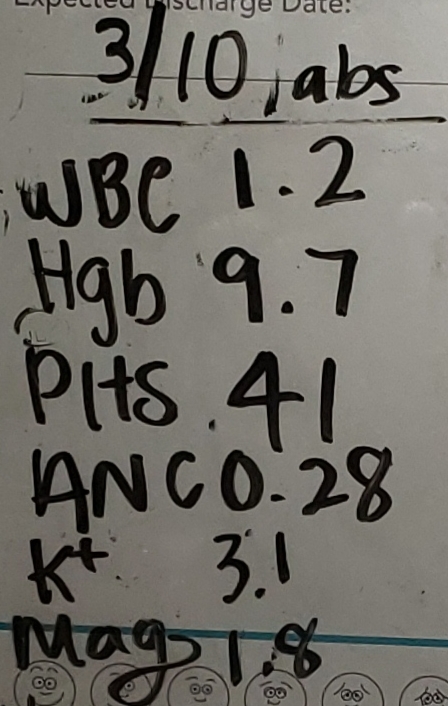 Expected Discharge Date:
3/10 labs
WBC 1.2
Hgb 9.7
Plts 41
ANC 0.28
K+ 3.1
Mag 1.8